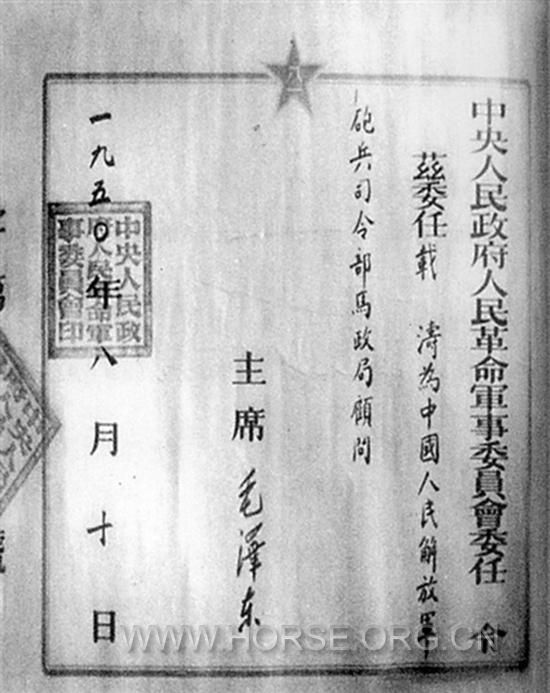 中央人民政府人民革命軍事委員會委任令
茲委任載 濤為中國人民解放軍
砲兵司令部馬政局顧問
主席 毛澤东
一九五〇年八月十日
中央人民政
府人民革命軍
事委員會印
八一
WWW.HORSE.ORG.CN